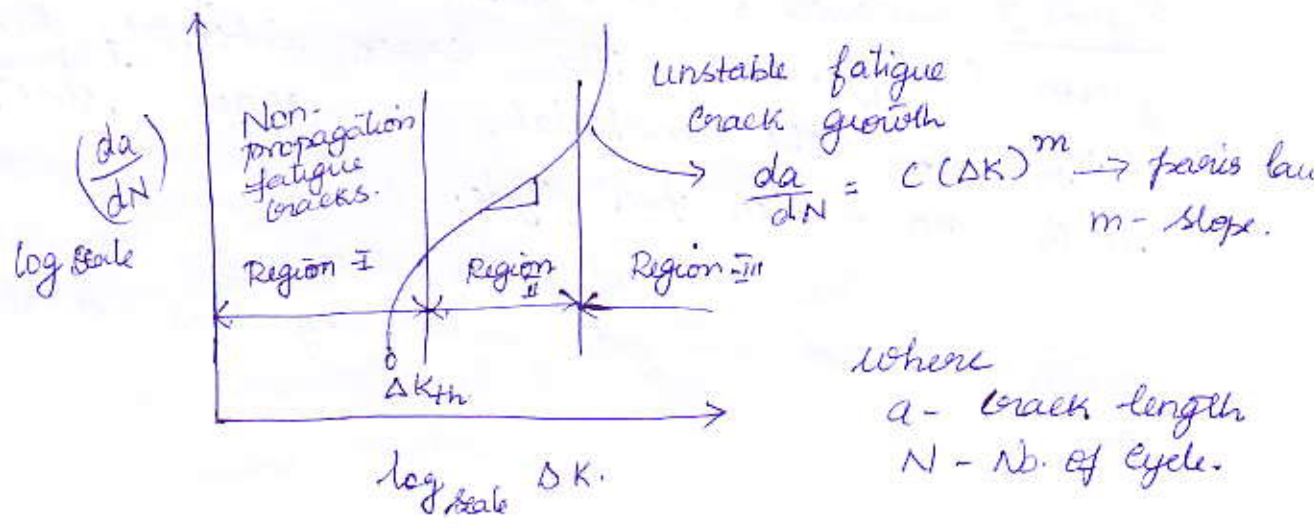 (da/dN)
log scale
Non-
propagation
fatigue
cracks.
Region-I
Region
II
Region-III
ΔKth
log scale ΔK.
unstable fatigue
crack growth
da/dN = C(ΔK)^m → paris law
m - slope.
where
a - crack length
N - No. of cycle.